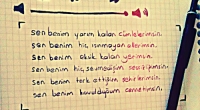 sen benim yarım kalan cümlelerimsin.
sen benim hiç ısınmayan ellerimsin.
sen benim eksik kalan yerimsin.
sen benim hiç sevmediğim
sen benim terk ettiğim şehirlerimsin.
sen benim kovulduğum cennetimsin.